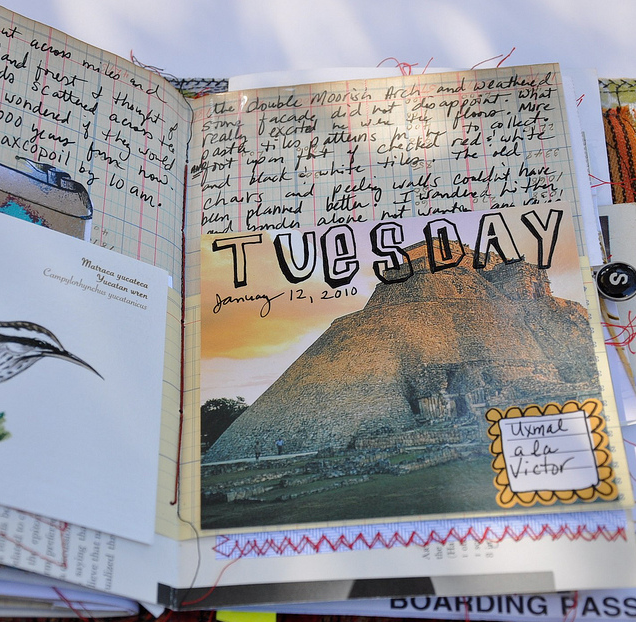 out across miles and
and forest I thought of
scattered across
wondered if they would
000 years from now.
axcopoil by 10 am.
Matraca yucateca
Yucatan wren
Campylorhynchus yucatanicus
the double Moorish Arch and weathered
Some facade did not disappoint. What
really excited me were the floors. More
pasta tiles patterns for my to collect.
foot upon foot of checked red & white
and black & white tiles. the old
chairs and peeling walls couldn't have
been planned better. I wandered hither
and yonder alone not wanting any
TUESDAY
January 12, 2010
Uxmal
a la
Victor
S
BOARDING PASS